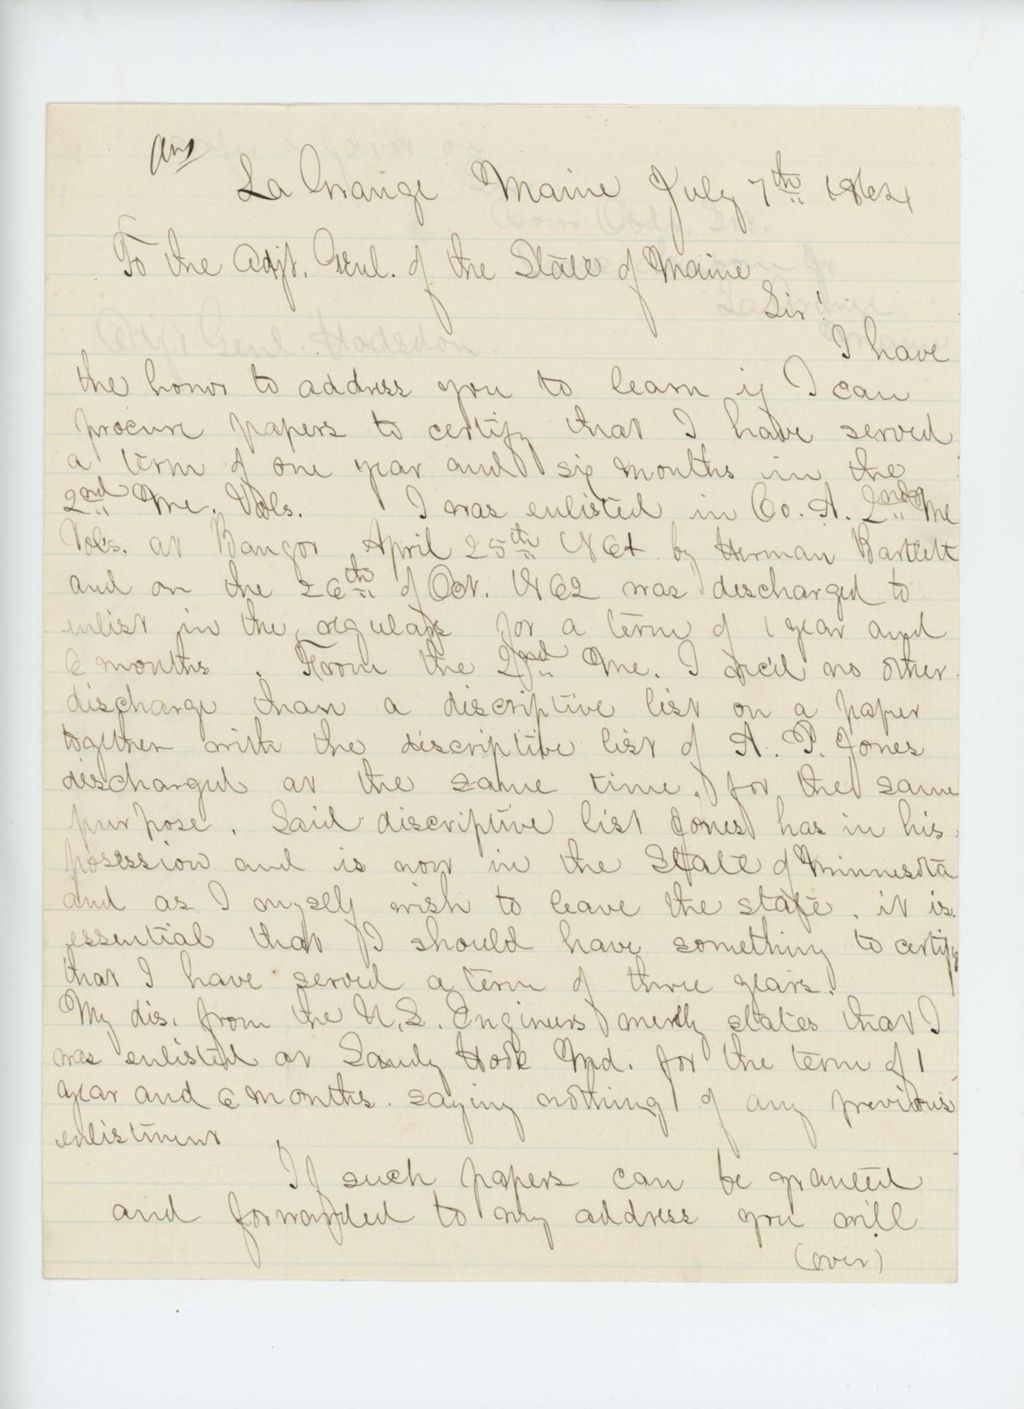 Ans
La Grange Maine July 7th 1864
To the Adjt. Genl. of the State of Maine
Sir!
I have
the honor to address you to learn if I can
procure papers to certify that I have served
a term of one year and six months in the
2nd Me. Vols. I was enlisted in Co. A. 2nd Me
Vols. at Bangor April 25th 1861 by Herman Bartlett
and on the 26th of Oct. 1862 was discharged to
enlist in the regulars for a term of 1 year and
6 months. From the 2nd Me. I rec'd no other
discharge than a discriptive list on a paper
together with the discriptive list of A. P. Jones
discharged at the same time, for the same
purpose. Said discriptive list Jones has in his
posession and is now in the State of Minnesota
and as I myself wish to leave the state, it is
essential that I should have something to certify
that I have served a term of three years.
My dis. from the U.S. Engineers merely states that I
was enlisted at Sandy Hook Md. for the term of 1
year and 6 months saying nothing of any previous
enlistment.
If such papers can be granted
and forwarded to my address you will
(over)